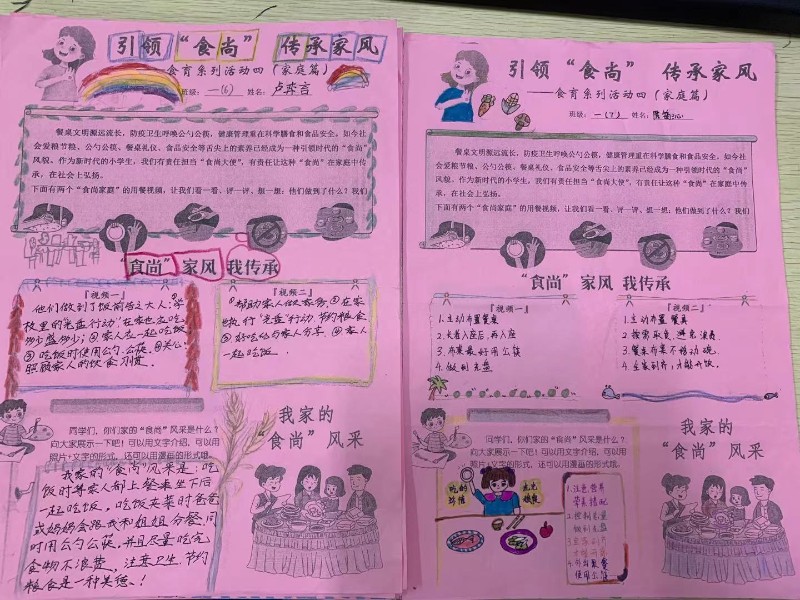 引领“食尚” 传承家风
食育系列活动四（家庭篇）
班级：一(6) 姓名：卢弈言
餐桌文明源远流长，防疫卫生呼唤公勺公筷，健康管理重在科学膳食和食品安全。如今社
会爱粮节粮、公勺公筷、餐桌礼仪、食品安全等舌尖上的素养已经成为一种引领时代的“食尚”
风貌。作为新时代的小学生，我们有责任担当“食尚大使”，有责任让这种“食尚”在家庭中传
承，在社会上弘扬。
下面有两个“食尚家庭”的用餐视频，让我们看一看、评一评、想一想：他们做到了什么？我们
“食尚”家风 我传承
『视频一』
他们做到了饭前告之大人：学
校里的光盘行动，在家也去吃
多少盛多少；②家人在一起吃饭
③吃饭时使用公勺、公筷。④关心
照顾家人的饮食习惯。
『视频二』
①帮助家人做家务。②在家
执行“光盘”行动，节约粮食
③好吃的与家人分享。④家人
一起吃饭。
同学们，你们家的“食尚”风采是什么？
向大家展示一下吧！可以用文字介绍，可以用
照片+文字的形式，还可以用漫画的形式哦。
我家的
“食尚”风采
我家的“食尚”风采是：吃
饭时等家人都上餐桌坐下后
一起吃饭，吃饭夹菜时爸爸
或妈妈会给我和姐姐分餐，同
时用公勺公筷，并且尽量吃完
食物不浪费，注意卫生，节约
粮食是一种美德！
引领“食尚” 传承家风
——食育系列活动四（家庭篇）
班级：一(7) 姓名：
餐桌文明源远流长，防疫卫生呼唤公勺公筷，健康管理重在科学膳食和食品安全。如今社
会爱粮节粮、公勺公筷、餐桌礼仪、食品安全等舌尖上的素养已经成为一种引领时代的“食尚”
风貌。作为新时代的小学生，我们有责任担当“食尚大使”，有责任让这种“食尚”在家庭中传
承，在社会上弘扬。
下面有两个“食尚家庭”的用餐视频，让我们看一看、评一评、想一想：他们做到了什么？我们
“食尚”家风 我传承
『视频一』
1.主动布置餐桌
2.长者入座后，再入座
3.布菜最好用公筷
4.做到光盘
『视频二』
1.主动布置餐具
2.按需取食，避免浪费
3.餐桌布菜不移动碗
4.全家到齐，才能开饭。
同学们，你们家的“食尚”风采是什么？
向大家展示一下吧！可以用文字介绍，可以用
照片+文字的形式，还可以用漫画的形式哦。
我家的
“食尚”风采
吃的
珍惜
光光
1.注意营养
营养搭配
2.控制光盘
做到光盘
使用公筷